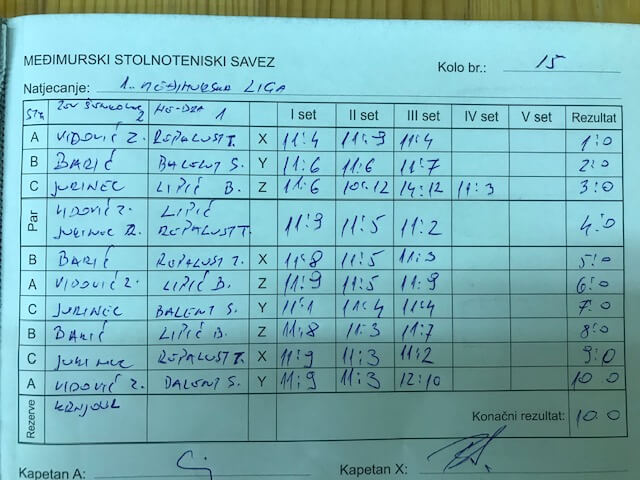 MEĐIMURSKI STOLNOTENISKI SAVEZ
Kolo br.: 15
Natjecanje: 1. MEĐIMURSKA LIGA
2 1 I set II set III set IV set V set Rezultat
A VIDOVIĆ Z. REPALUST T. X 11:4 11:9 11:4 1:0
B BARIĆ BALENT S. Y 11:6 11:6 11:7 2:0
C JURINEC LIPIĆ B. Z 11:6 10:12 14:12 11:3 3:0
Par VIDOVIĆ Z. LIPIĆ
JURINEC REPALUST T. 11:9 11:5 11:2 4:0
B BARIĆ REPALUST T. X 11:8 11:5 11:3 5:0
A VIDOVIĆ Z. LIPIĆ B. Z 11:9 11:5 11:9 6:0
C JURINEC BALENT S. Y 11:1 11:4 11:4 7:0
B BARIĆ LIPIĆ B. Z 11:8 11:3 11:7 8:0
C JURINEC REPALUST T. X 11:9 11:3 11:2 9:0
A VIDOVIĆ Z. BALENT S. Y 11:9 11:3 12:10 10:0
Rezerve Konačni rezultat: 10:0
Kapetan A: Kapetan X: